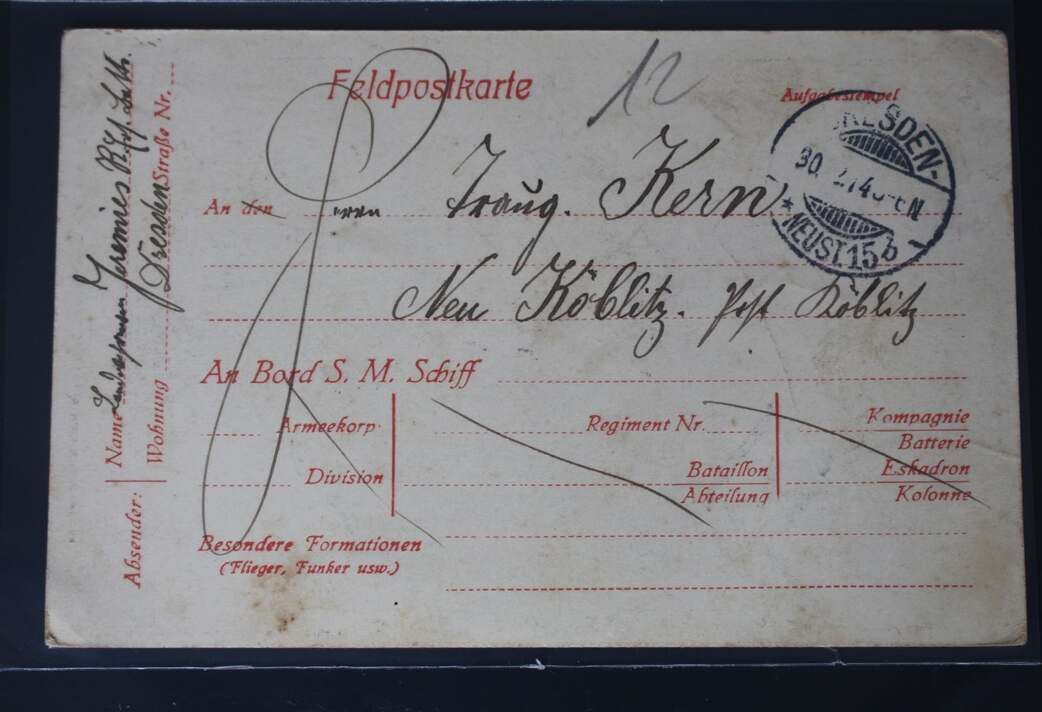 Feldpostkarte
12
Aufgabestempel
DRESDEN-
30.
NEUST. 15 b
An den Herrn Traug. Kern
Neu Köblitz. Post Köblitz
An Bord S. M. Schiff
Armeekorp
Division
Regiment Nr.
Bataillon
Abteilung
Kompagnie
Batterie
Eskadron
Kolonne
Besondere Formationen
(Flieger, Funker usw.)
Absender:
Name
Wohnung Dresden Straße Nr.